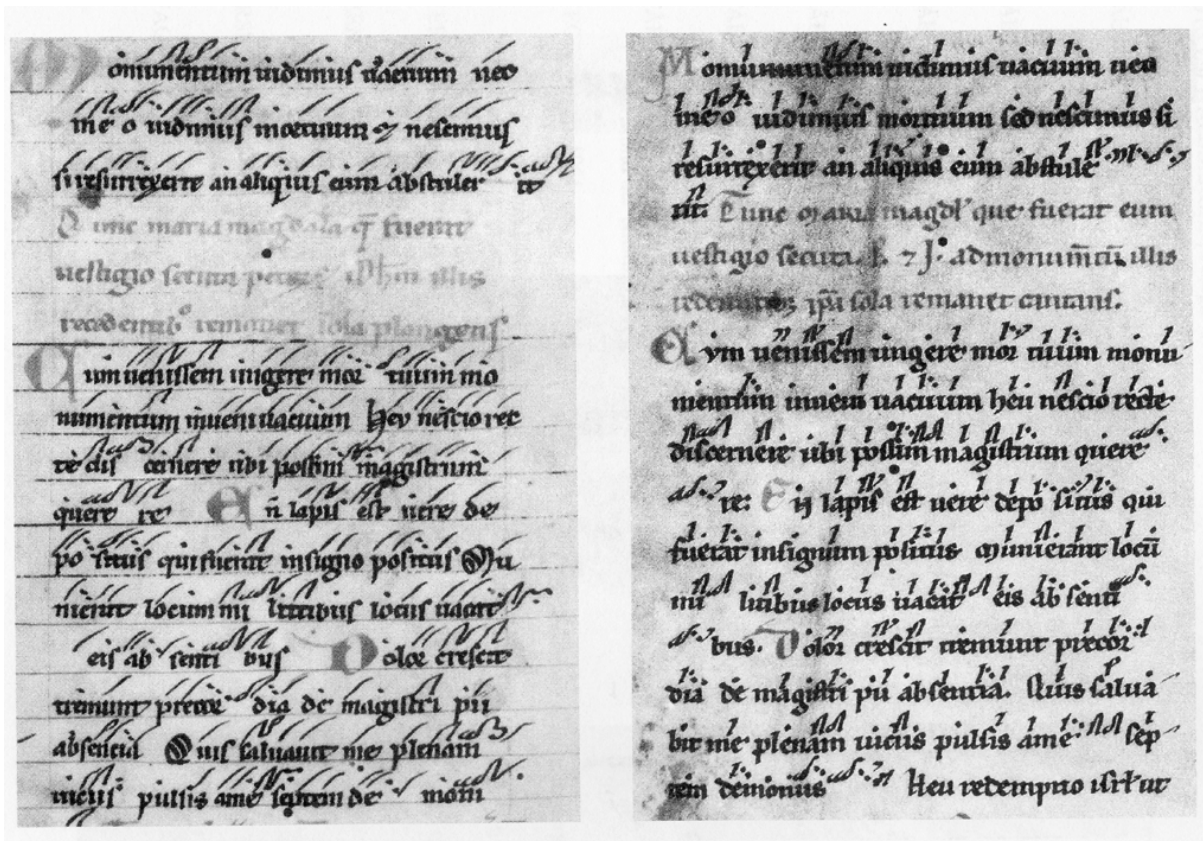 Monumentum uidimus uacuum nec
me o uidimus mortuum & nescimus
si resurrexerit an aliquis eum abstuler it
Tunc maria magdala q̄ fuerat
uestigio secuta illis
recedentib; remanet sola plangens
Cum uenissem ungere mor tuum mo
numentum inueni uacuum Heu nescio rec
te dis cernere ubi possim magistrum
quere re En lapis est uere de
po situs qui fuerat insigno positus Mu
nierant locum mi litibus locus uacat
eis ab senti bus Dolor crescit
tremunt precor dia de magistri pii
absencia Quis saluauit me plenam
uiciis pulsis a me septem de moni
Monumentum uidimus uacuum nec
me o uidimus mortuum sed nescimus si
resurrexerit an aliquis eum abstule
rit. Tunc Maria magdł que fuerat eum
uestigio secuta. illis
sola remanet
Cvm uenissem ungere mor tuum monu
mentum inueni uacuum heu nescio recte
discernere ubi possim magistrum quere
re: En lapis est uere depo situs qui
fuerat insignum positus Munierant locū
mi litibus locus uacat eis ab senti
bus. Dolor crescit tremunt precor
dia de magistri pii absentia. Quis salua
bit me plenam uiciis pulsis a me sep
tem demoniis Heu redemptio isrł ut